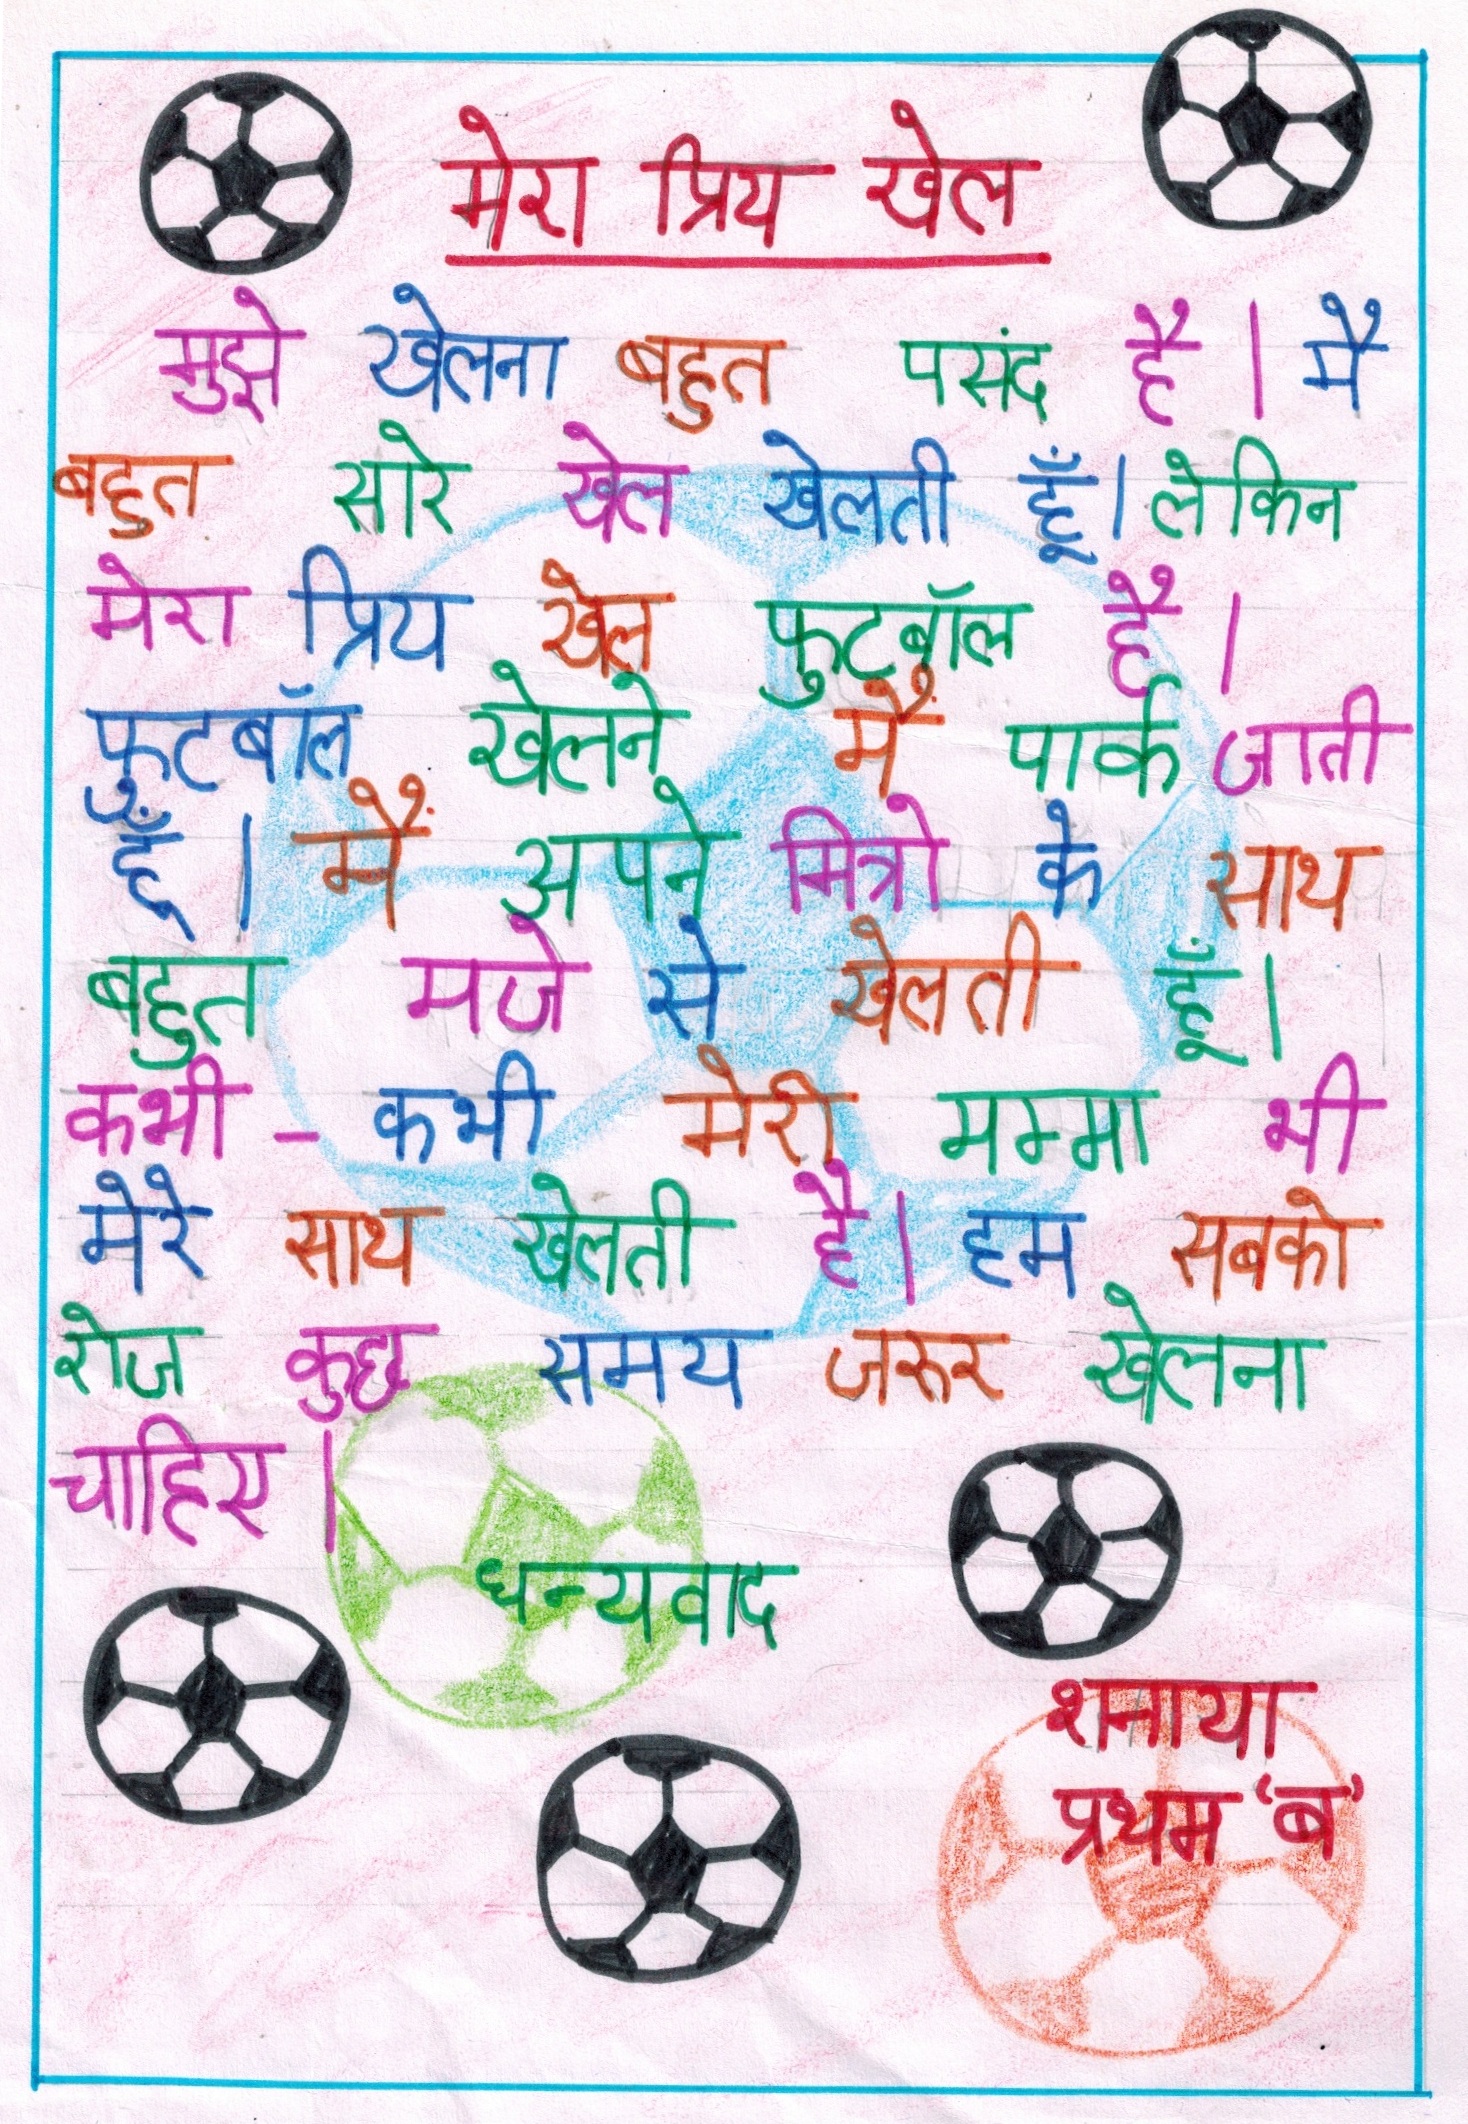 मेरा प्रिय खेल
मुझे खेलना बहुत पसंद है। मै
बहुत सारे खेल खेलती हूँ। लेकिन
मेरा प्रिय खेल फुटबॉल है।
फुटबॉल खेलने मैं पार्क जाती
हूँ। मैं अपने मित्रो के साथ
बहुत मजे से खेलती हूँ।
कभी - कभी मेरी मम्मा भी
मेरे साथ खेलती है। हम सबको
रोज कुछ समय जरूर खेलना
चाहिए।
धन्यवाद
शमाया
प्रथम 'ब'